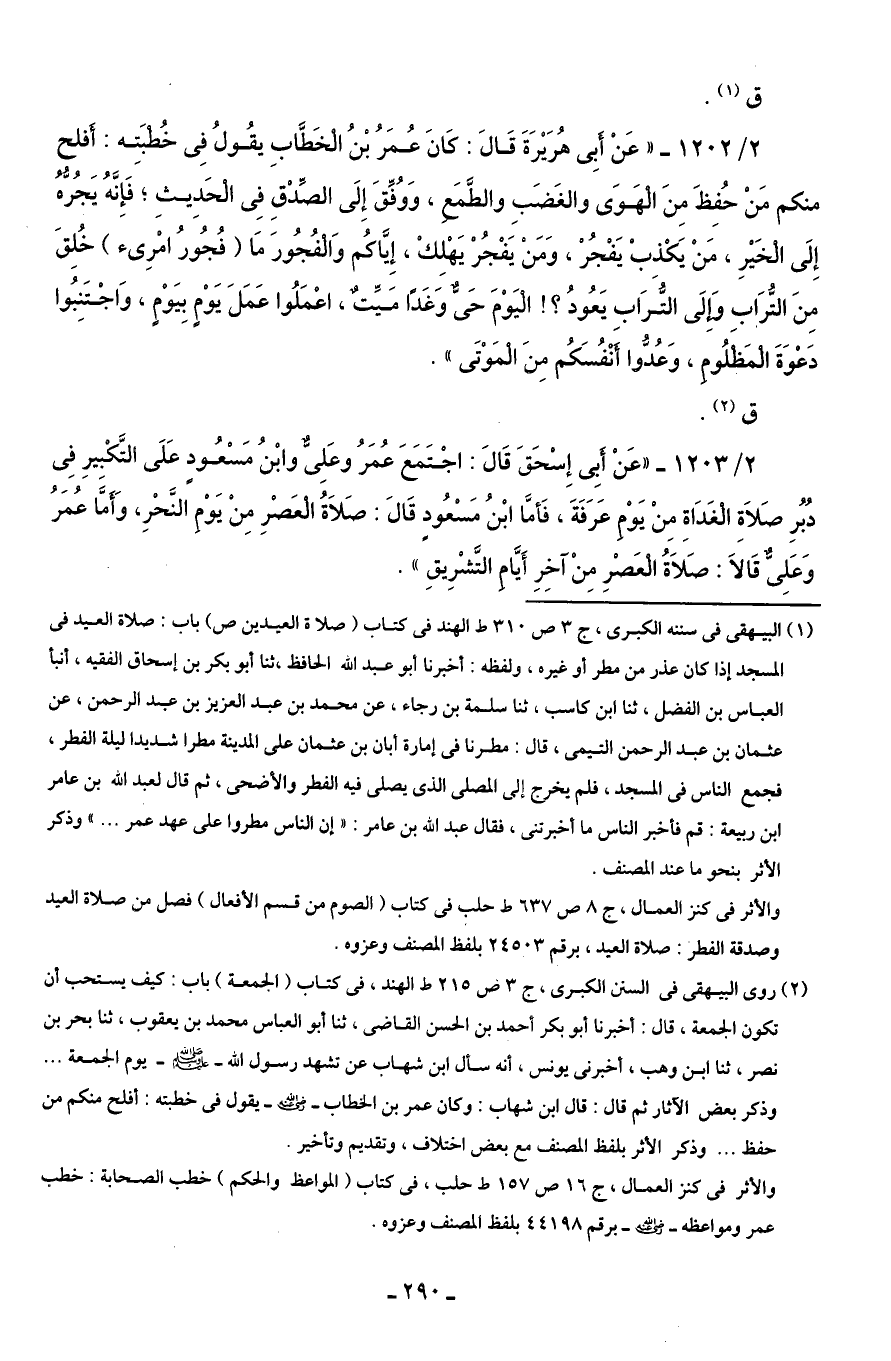 ق (١) .
٢/ ١٢٠٢ ـ « عَنْ أَبِى هُرَيْرَةَ قَـالَ : كَانَ عُـمَرُ بْنُ الْخَطَّابِ يقُـولُ فِى خُطْبَتِـه : أَفلح
منكم مَنْ حُفِظَ مِنَ الْهَـوَى والغَضَبِ والطَّمَعِ ، وَوُفِّقَ إِلَى الصِّدْقِ فِى الْحَدِيـثِ ؛ فَإِنَّهُ يَجُرُّهُ
إِلَى الْخَيْرِ ، مَنْ يَكْذِبْ يَفْجُرْ ، وَمَنْ يَفْجُرْ يَهْلِكْ ، إِيَّاكُم وَالْفُجُورَ مَا ( فُجُورُ امْرِىء ) خُلِقَ
مِنَ التُّرَابِ وَإِلَى التُّـرَابِ يَعُودُ ؟! الْيَوْمَ حَىٌّ وَغَدًا مَـيِّتٌ ، اعْمَلُوا عَمَلَ يَوْمٍ بِيَوْمٍ ، وَاجْـتَنِبُوا
دَعْوَةَ الْمَظْلُومِ ، وَعُدُّوا أَنْفُسَكُم مِنَ الْمَوْتَى » .
ق (٢) .
٢/ ١٢٠٣ ـ «عَنْ أَبِى إِسْحَقَ قَالَ : اجْـتَمَعَ عُمَرُ وَعَلِىٌّ وابْنُ مَسْعُـودٍ عَلَى التَّكْبِيرِ فِى
دُبُرِ صَلَاةِ الْغَدَاةِ مِنْ يَوْمِ عَرَفَةَ ، فَأَمَّا ابْنُ مَسْعُودٍ قَالَ : صَلَاةُ الْعَصْرِ مِنْ يَوْمِ النَّحْرِ، وَأَمَّا عُمَرُ
وَعَلِىٌّ قَالاَ : صَلَاةُ الْعَصْرِ مِنْ آخِرِ أَيَّامِ التَّشْرِيقِ » .
(١) البيـهقى فى سننه الكبـرى ، ج ٣ ص ٣١٠ ط الهند فى كتـاب ( صلا ة العيـدين ص) باب : صلاة العـيد فى
المسجد إذا كان عذر من مطر أو غيره ، ولفظه : أخبرنا أبو عـبد الله الحافظ ،ثنا أبو بكر بن إسحاق الفقيه ، أنبأ
العباس بن الفضل ، ثنا ابن كاسب ، ثنا سلـمة بن رجاء ، عن محمـد بن عبد العزيز بن عبد الرحمن ، عن
عثـمان بن عبـد الرحمن التيـمى ، قال : مطـرنا فى إمارة أبان بن عثـمان على المدينة مطرا شـديدا ليلة الفطر ،
فجمع الناس فى المسجد ، فلم يخرج إلى المصلى الذى يصلى فيه الفطر والأضحى ، ثم قال لعبد الله بن عامر
ابن ربيعة : قم فأخبر الناس ما أخبرتنى ، فقال عبد الله بن عامر : « إن الناس مطروا على عهد عمر ... » وذكر
الأثر بنحو ما عند المصنف .
والأثر فى كنز العمـال ، ج ٨ ص ٦٣٧ ط حلب فى كتاب ( الصوم من قـسم الأفعال ) فصل من صـلاة العيد
وصدقة الفطر : صلاة العيد ، برقم ٢٤٥٠٣ بلفظ المصنف وعزوه .
(٢) روى البيـهقى فى السنن الكبرى ، ج ٣ ص ٢١٥ ط الهند ، فى كتـاب ( الجمعة ) باب : كيف يستحب أن
تكون الجمعة ، قال : أخبرنا أبو بكر أحمد بن الحسن القـاضى ، ثنا أبو العباس محمد بن يعقوب ، ثنا بحر بن
نصر ، ثنا ابـن وهب ، أخبرنى يونس ، أنه سـأل ابن شهاب عن تشهد رسول الله ـ ﷺ ـ يوم الجمـعة ...
وذكر بعض الآثار ثم قال : قال ابن شهاب : وكان عمر بن الخطاب ـ رضي الله عنه ـ يقول فى خطبته : أفلح منكم من
حفظ ... وذكر الأثر بلفظ المصنف مع بعض اختلاف ، وتقديم وتأخير .
والأثر فى كنز العمـال ، ج ١٦ ص ١٥٧ ط حلب ، فى كتاب ( المواعظ والحكم ) خطب الصحـابة : خطب
عمر ومواعظه ـ رضي الله عنه ـ برقم ٤٤١٩٨ بلفظ المصنف وعزوه .
ـ ٢٩٠ ـ